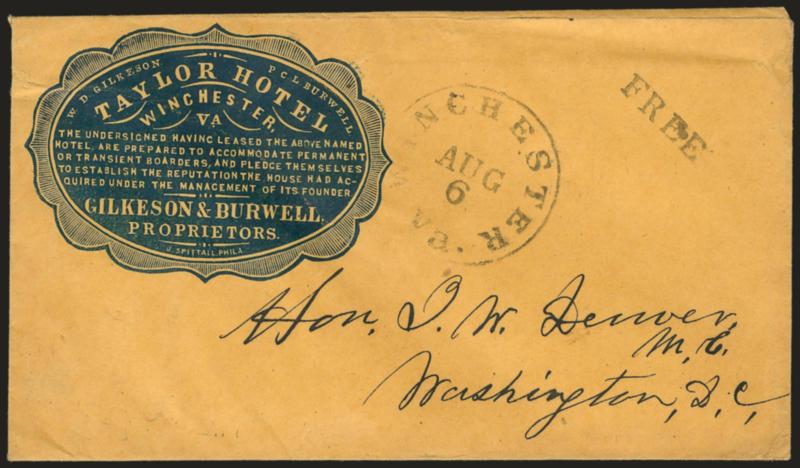 W. D. GILKESON P. C. L. BURWELL
TAYLOR HOTEL
WINCHESTER,
VA
THE UNDERSIGNED HAVING LEASED THE ABOVE NAMED
HOTEL, ARE PREPARED TO ACCOMMODATE PERMANENT
OR TRANSIENT BOARDERS, AND PLEDGE THEMSELVES
TO ESTABLISH THE REPUTATION THE HOUSE HAD AC-
QUIRED UNDER THE MANAGEMENT OF ITS FOUNDER
GILKESON & BURWELL,
PROPRIETORS.
J. SPITTALL, PHILA
WINCHESTER. Va
AUG
6
FREE
Hon. J. W. Denver,
M. C.
Washington, D. C,